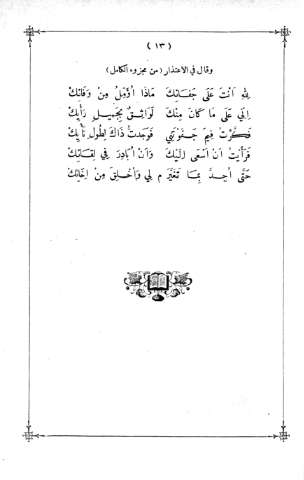 ( ١٣ )
وقال في الاعتذار (من مجزوء الكامل)
لِلهِ أَنْتَ عَلَى جَفَائِكْ مَاذَا أُؤَمِّلُ مِنْ وَفَائِكْ
إِنِّي عَلَى مَا كَانَ مِنْكَ لَوَاثِقٌ بِجَمِيلِ رَأْيِكْ
فَكَّرْتُ فِيمَ جَفَوْتَنِي فَوَجَدْتُ ذَاكَ لِطُولِ نَأْيِكْ
فَرَأَيْتُ أَنْ أَسْعَى إِلَيْكَ وَأَنْ أُبَادِرَ فِي لِقَائِكْ
حَتَّى أُجَدِّدَ مَا تَغَيَّرَ م لِي وَأَخْلَقَ مِنْ إِخَائِكْ